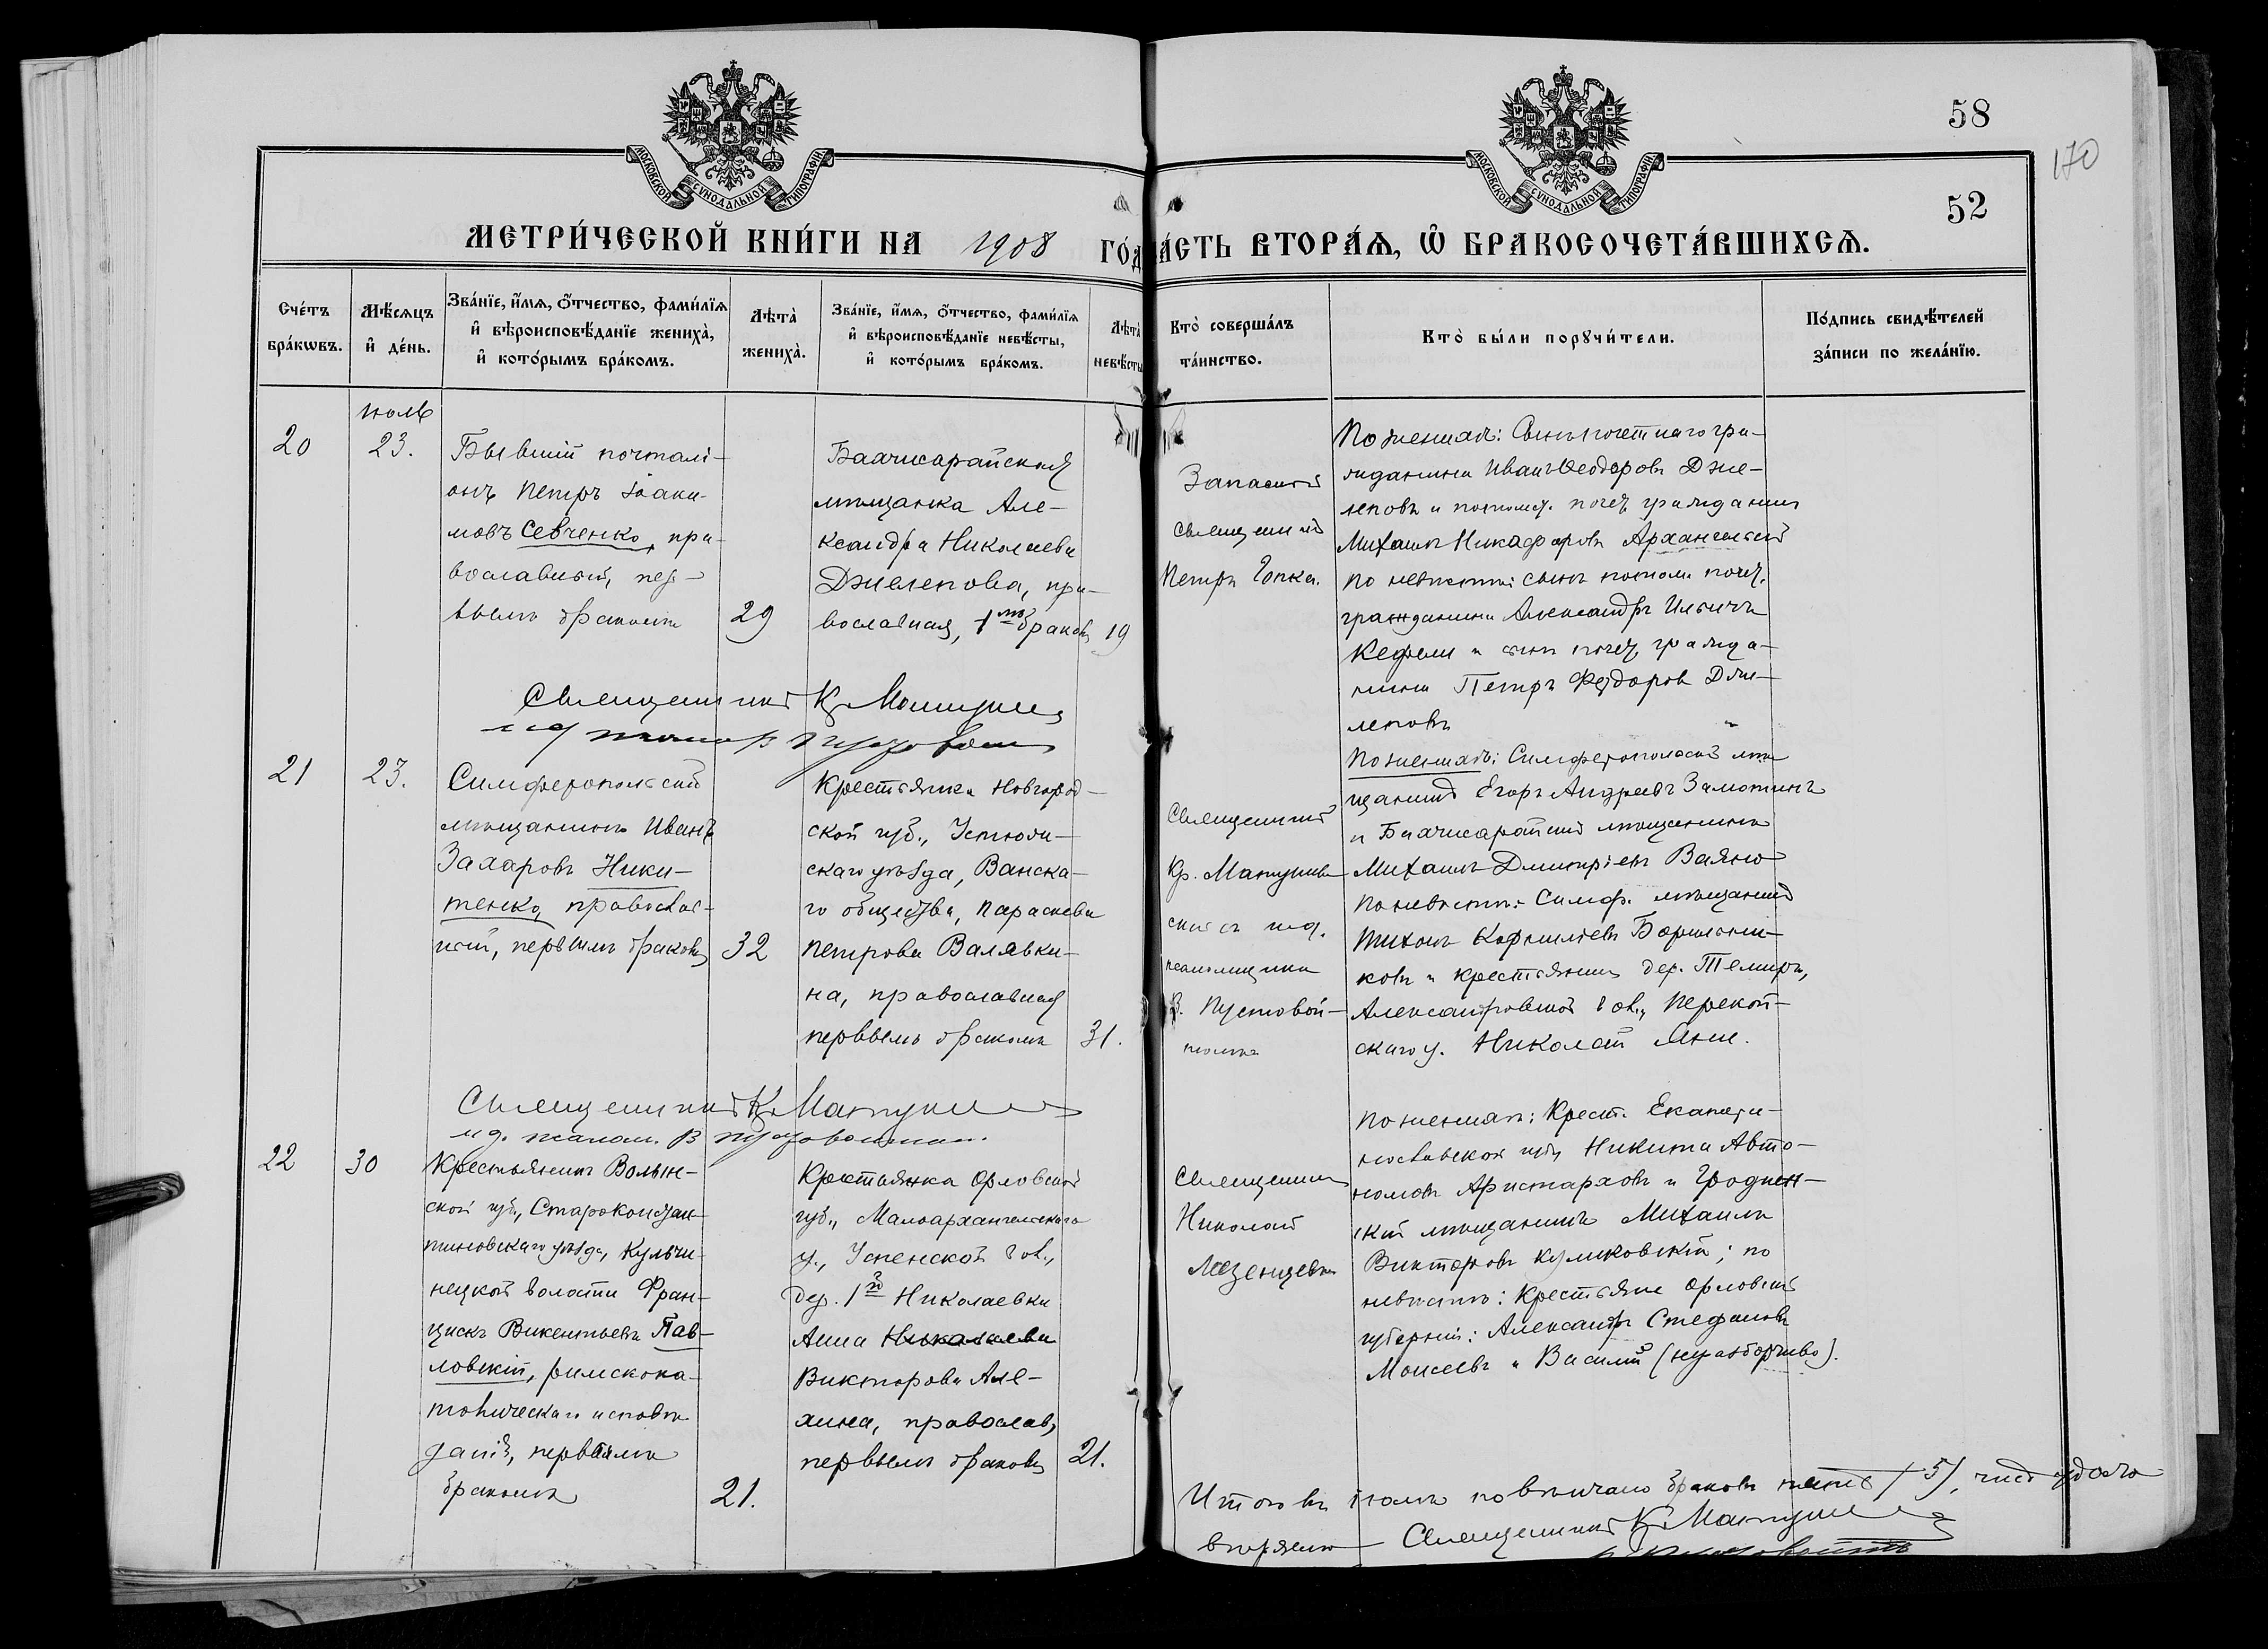 58
170
52
МОСКОВСКОЙ СѴНОДАЛЬНОЙ ТИПОГРАФІИ
МОСКОВСКОЙ СѴНОДАЛЬНОЙ ТИПОГРАФІИ
МЕТРИ́ЧЕСКОЙ КНИ́ГИ НА 1908 ГО́Д
А́СТЬ ВТОРА́Ѧ, Ѽ БРАКОСОЧЕТА́ВШИХСѦ.
Сче́тъ бра́кѡвъ.
Мѣ́сѧцъ и҆ де́нь.
Зва́нїе, и҆́мѧ, ѻ҆́тчество, фами́лїѧ
и҆ вѣроисповѣ́данїе жениха̀,
и҆ кото́рымъ бра́комъ.
Лѣта̀ жениха̀.
Зва́нїе, и҆́мѧ, ѻ҆́тчество, фами́лїѧ
и҆ вѣроисповѣ́данїе невѣ́сты,
и҆ кото́рымъ бра́комъ.
Лѣта̀ невѣ́сты
Кто̀ соверша́лъ та́инство.
Кто̀ бы́ли порꙋчи́тели.
По́дпись свидѣ́телей за́писи по жела́нїю.
20
Июль
23.
Бывшій почталі-
онъ Петръ Іоаки-
мовъ Севченко, пра-
вославный, пер-
вымъ бракомъ
29
Бахчисарайская
мѣщанка Але-
ксандра Николаева
Джелепова, пра-
вославная, 1мъ бракомъ
19
Запасный
священникъ
Петръ Гопка.
По женихѣ: Сынъ почетнаго гра-
жданина Иванъ Ѳеодоровъ Дже-
леповъ и потом. почет. гражданинъ
Михаилъ Никифоровъ Архангельскій
По невѣстѣ: сынъ потом. почет.
гражданина Александръ Ильичъ
Кефели и сынъ почет. гражда-
нина Петръ Федоровъ Дже-
леповъ
Священникъ К. Матушевъ
21
23.
Симферопольскій
мѣщанинъ Иванъ
Захаровъ Ники-
тенко, православ-
ный, первымъ бракомъ
32
Крестьянка Новгород-
ской губ., Устюж-
скаго уѣзда, Ванска-
го общества, Параскева
Петрова Валявки-
на, православная
первымъ бракомъ
31.
Священникъ
Кр. Матушев-
скій съ и.д.
псаломщика
В. Пустовой-
томъ
По женихѣ: Симферопольскій мѣ-
щанинъ Егоръ Андреевъ Замотинъ
и Бахчисарайскій мѣщанинъ
Михаилъ Дмитріевъ Ваяно
По невѣстѣ: Симф. мѣщанинъ
Тихонъ Корниліевъ
ковъ и крестьянинъ дер. Темиръ,
Александровской вол., Перекоп-
скаго у. Николай Янн.
Священникъ К. Матушев
и.д. псалом. В Пустовойтъ.
22
30
Крестьянинъ Волын-
ской губ., Старокон<unk>стан-
тиновскаго уѣзда, Кульчи-
нецкой волости Фран-
цискъ Викентьевъ Пав-
ловскій, римскока-
толическаго исповѣ-
данія, первымъ
бракомъ
21.
Крестьянка Орловской
губ., Малоархангельскаго
у., Успенской вол.,
дер. 1й Николаевки
Анна Николаева
Викторова Але-
хина, православ,
первымъ бракомъ
21.
Священникъ
Николай
Мезенцевъ
По женихѣ: Крест. Екатери-
нославской губ. Никита Авто-
номовъ Аристарховъ и Гроднен-
скій мѣщанинъ Михаилъ
Викторовъ Куликовскій; по
невѣстѣ: Крестьяне Орловской
губерніи: Александръ Стефановъ
Моисеевъ и Василій (неразборчиво).
Итого въ іюлѣ повѣнчано браковъ пять (5),
вѣряемъ Священникъ К. Матушев